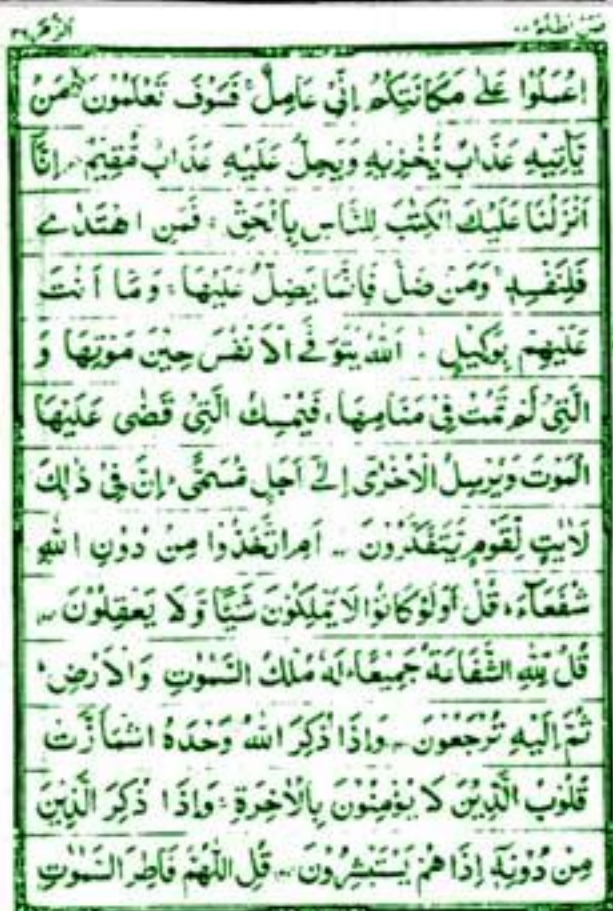 فمن اظلم ٢٤ الزمر ٣٩
اعْمَلُوْا عَلٰى مَكَانَتِكُمْ اِنِّىْ عَامِلٌ ۚ فَسَوْفَ تَعْلَمُوْنَ ۙ مَنْ
يَّاْتِيْهِ عَذَابٌ يُّخْزِيْهِ وَيَحِلُّ عَلَيْهِ عَذَابٌ مُّقِيْمٌ اِنَّا
اَنْزَلْنَا عَلَيْكَ الْكِتٰبَ لِلنَّاسِ بِالْحَقِّ ۚ فَمَنِ اهْتَدٰى
فَلِنَفْسِهٖ ۚ وَمَنْ ضَلَّ فَاِنَّمَا يَضِلُّ عَلَيْهَا ۚ وَمَآ اَنْتَ
عَلَيْهِمْ بِوَكِيْلٍ اَللّٰهُ يَتَوَفَّى الْاَنْفُسَ حِيْنَ مَوْتِهَا وَ
الَّتِىْ لَمْ تَمُتْ فِىْ مَنَامِهَا ۚ فَيُمْسِكُ الَّتِىْ قَضٰى عَلَيْهَا
الْمَوْتَ وَيُرْسِلُ الْاُخْرٰٓى اِلٰٓى اَجَلٍ مُّسَمًّى ۚ اِنَّ فِىْ ذٰلِكَ
لَاٰيٰتٍ لِّقَوْمٍ يَّتَفَكَّرُوْنَ اَمِ اتَّخَذُوْا مِنْ دُوْنِ اللّٰهِ
شُفَعَآءَ ۚ قُلْ اَوَلَوْ كَانُوْا لَا يَمْلِكُوْنَ شَيْـًٔا وَّلَا يَعْقِلُوْنَ
قُلْ لِّلّٰهِ الشَّفَاعَةُ جَمِيْعًا ۚ لَهٗ مُلْكُ السَّمٰوٰتِ وَالْاَرْضِ ۚ
ثُمَّ اِلَيْهِ تُرْجَعُوْنَ وَاِذَا ذُكِرَ اللّٰهُ وَحْدَهُ اشْمَاَزَّتْ
قُلُوْبُ الَّذِيْنَ لَا يُؤْمِنُوْنَ بِالْاٰخِرَةِ ۚ وَاِذَا ذُكِرَ الَّذِيْنَ
مِنْ دُوْنِهٖٓ اِذَا هُمْ يَسْتَبْشِرُوْنَ قُلِ اللّٰهُمَّ فَاطِرَ السَّمٰوٰتِ